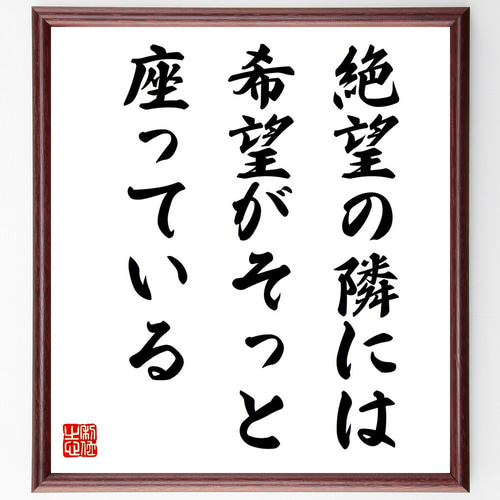 絶望の隣には
希望がそっと
座っている